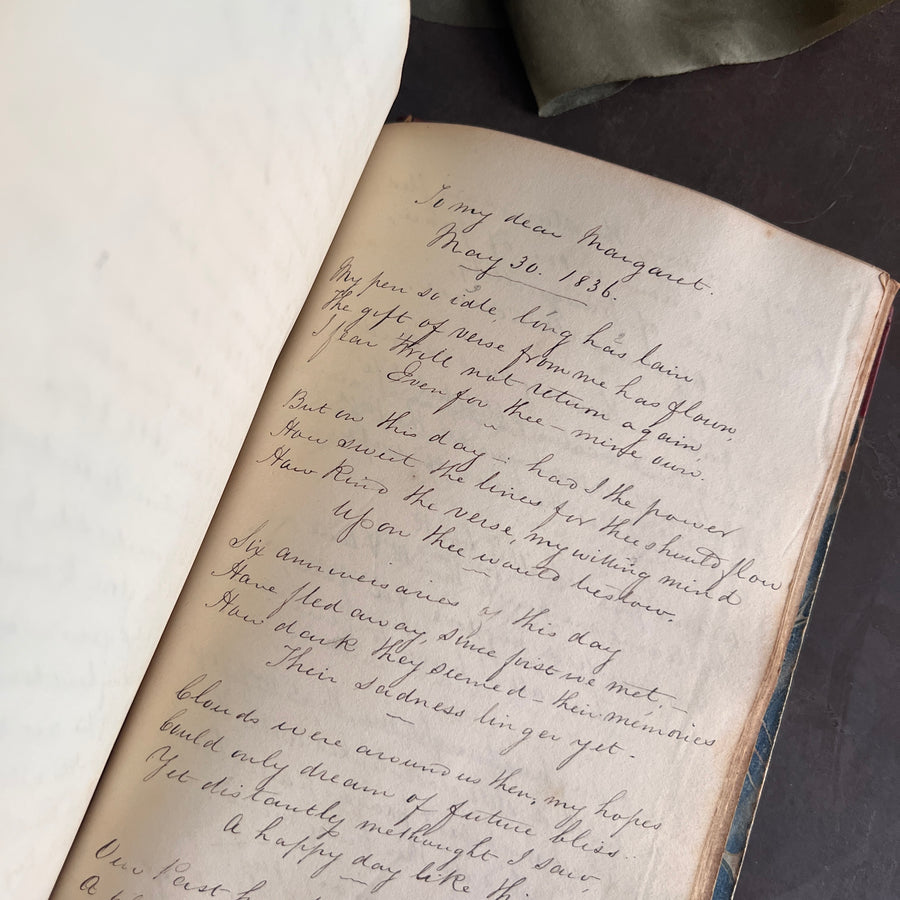 To my dear Margaret.
May 30. 1836.
My pen so idle, long has lain
The gift of verse from me has flown,
I fear 'twill not return again,
Even for thee - mine own.
But on this day - had I the power
How sweet the lines for thee should flow
How kind the verse, my willing mind
Upon thee would bestow.
Six anniversaries of this day
Have fled away, since first we met. -
How dark they seemed - their memories
Their sadness linger yet.
Clouds were around us then, my hopes
Could only dream of future bliss..
Yet distantly methought I saw,
A happy day like this
Our Past
A